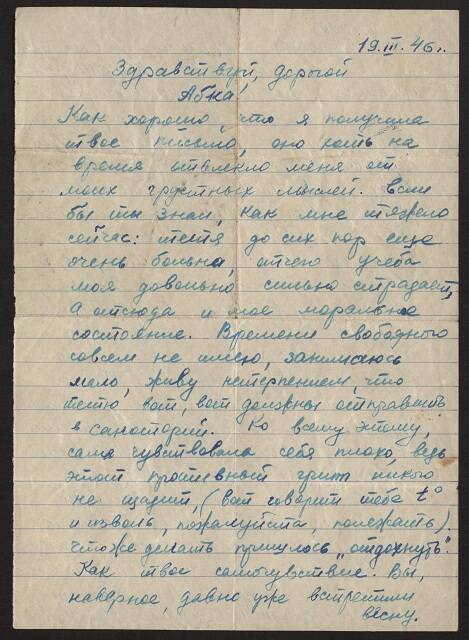 19.III.46г.
Здравствуй, дорогой
Абка!
Как хорошо, что я получила
твое письмо, оно хоть на
время отвлекло меня от
моих грустных мыслей. Если
бы ты знал, как мне тяжело
сейчас: тётя до сих пор еще
очень больна, отчего учеба
моя довольно сильно страдает,
а отсюда и мое моральное
состояние. Времени свободного
совсем не имею, занимаюсь
мало, живу нетерпением, что
тетю вот, вот должны отправить
в санаторий. Ко всему этому,
сама чувствовала себя плохо, ведь
этот противный грипп никого
не щадит, (вот говорит тебе t°
и изволь, пожалуйста, полежать).
Что же делать пришлось „отдохнуть".
Как твое самочувствие. Вы,
наверное, давно уже встретили
весну.